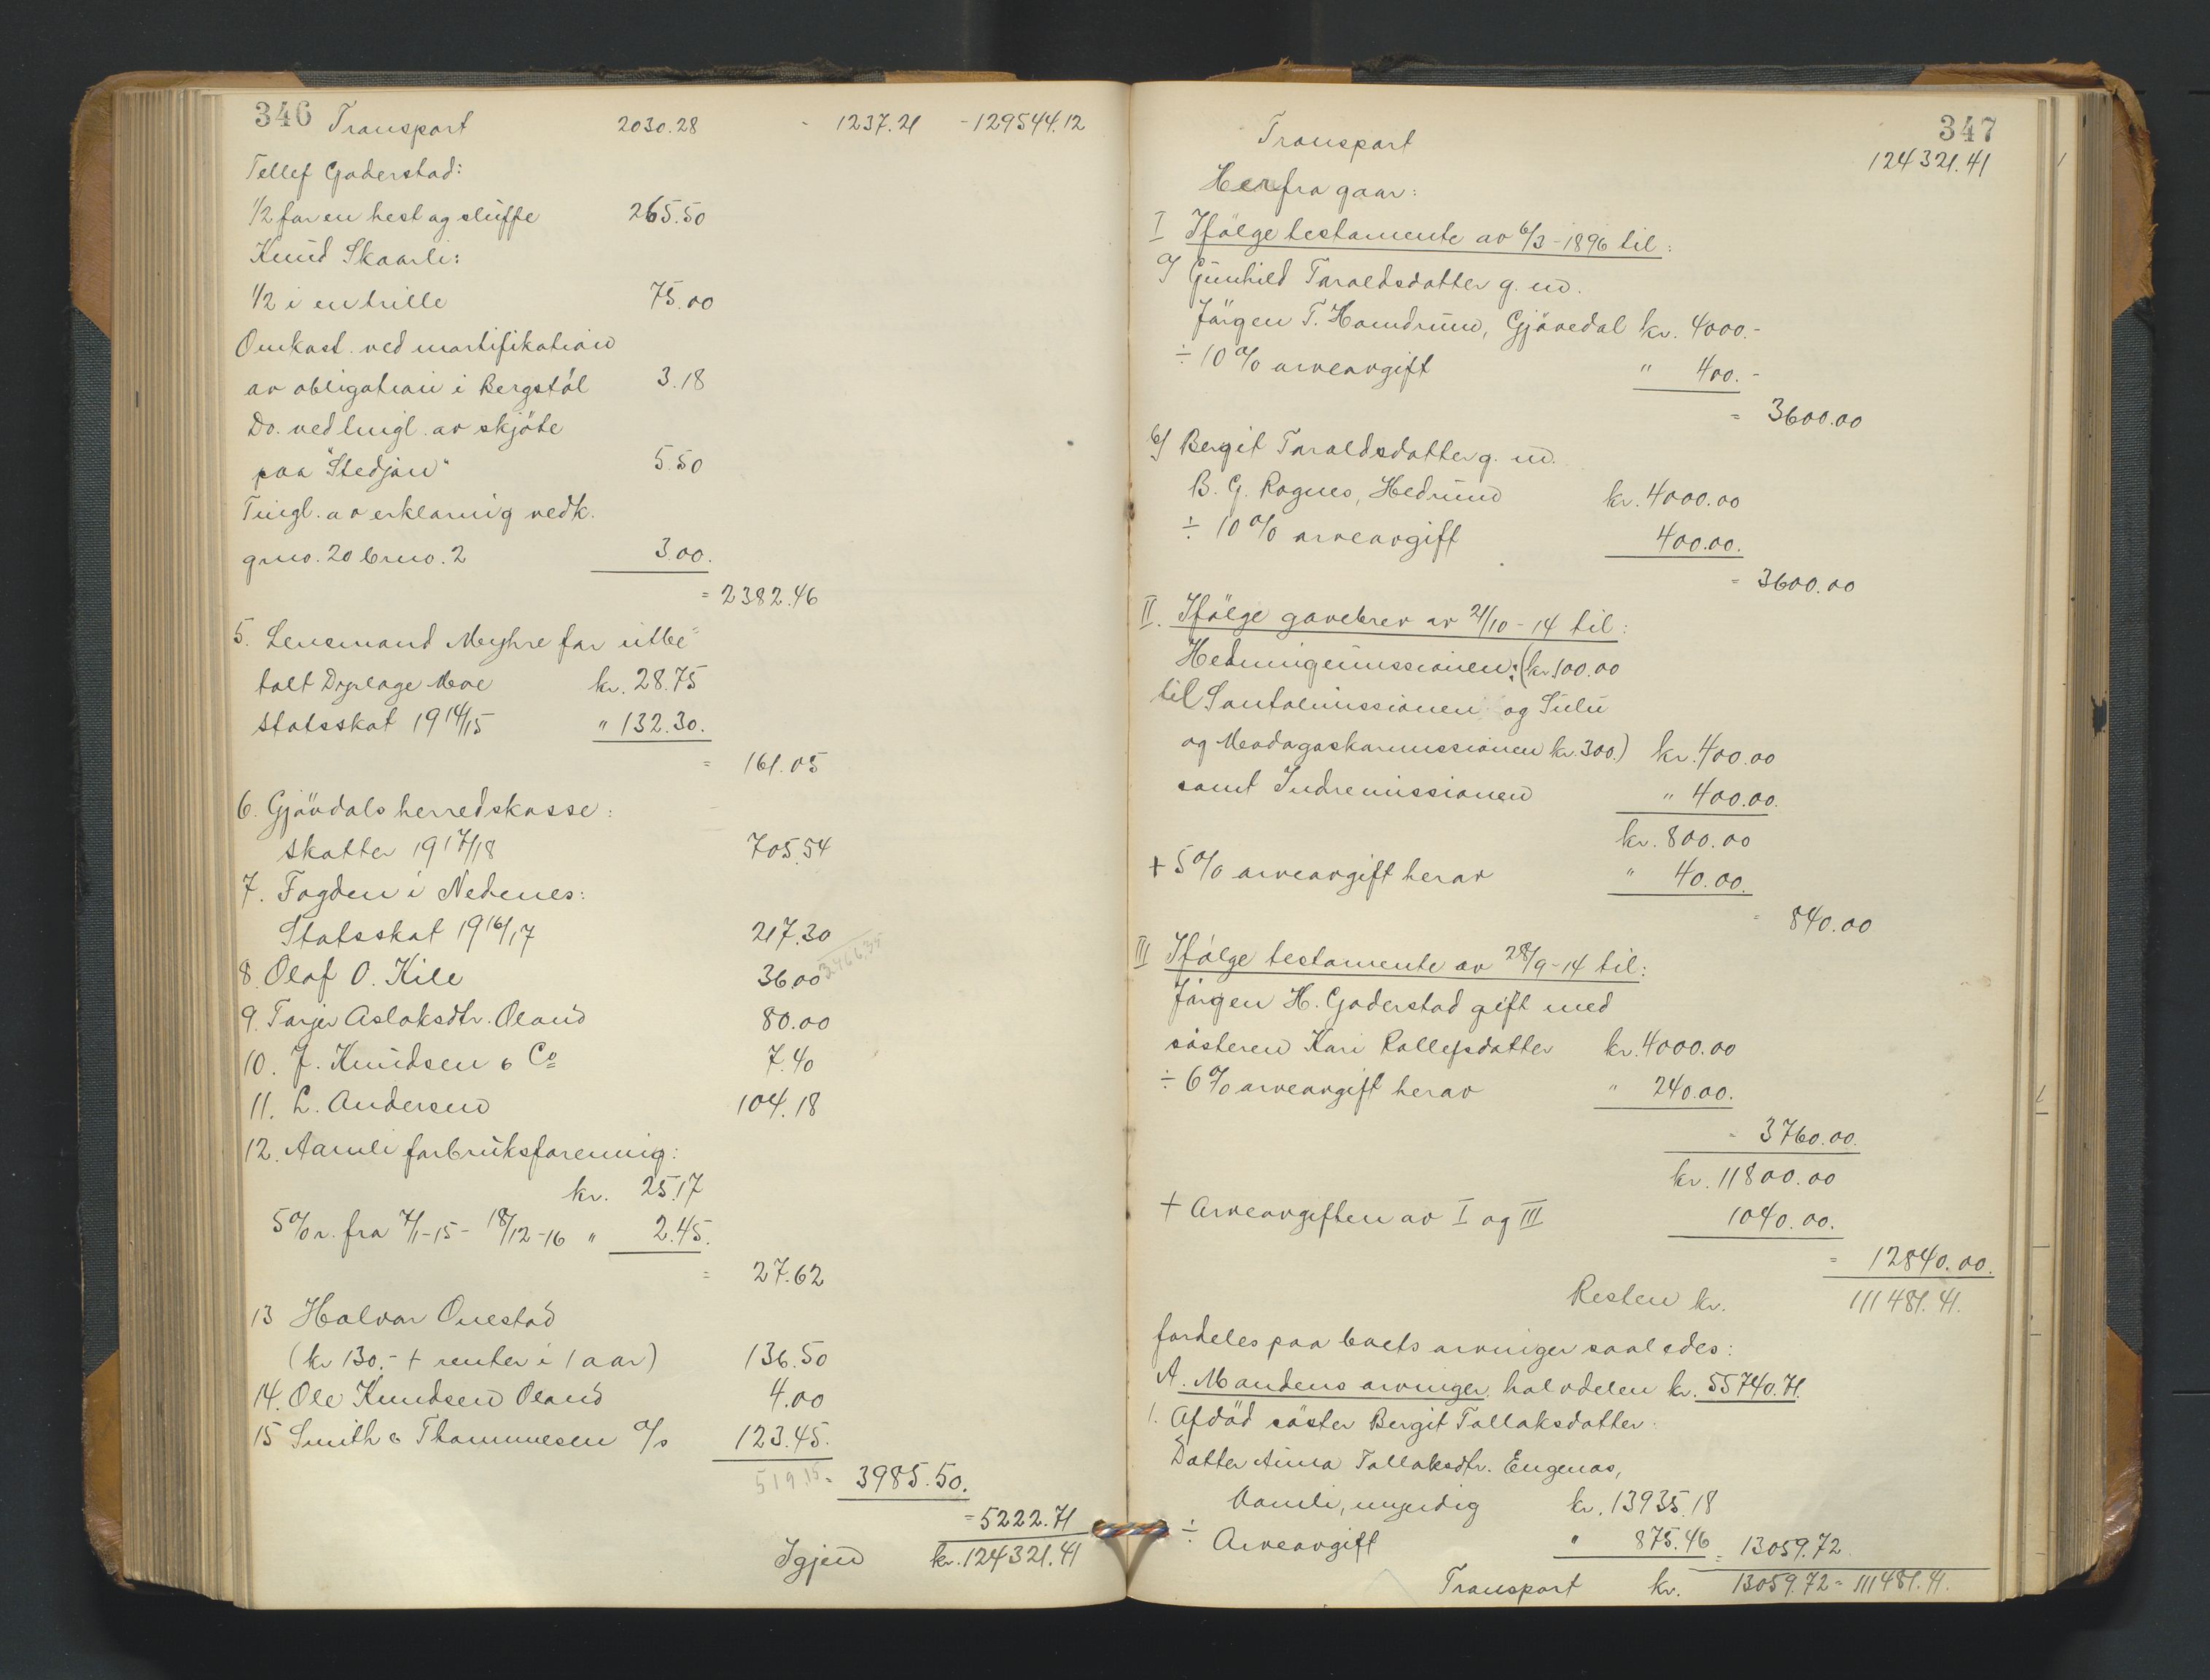 346 Transport 2030.28 - 1237.21 - 129544.12
Tellef Gaderstad:
1/2 for en hest og sluffe 265.50
Knud Skaarli:
1/2 i en trille 75.00
Omkost. ved mortifikation
av obligation i Bergstøl 3.18
Do. ved tingl. av skjöte
paa "Stedjan" 5.50
Tingl. av erklæring vedk.
grno. 20 brno. 2 3.00.
= 2382.46
5. Lensmand Myhre for utbe=
talt Dyrlæge Moe kr. 28.75
Statsskat 1914/15 " 132.30.
= 161.05
6. Gjövdals herredskasse:
Skatter 1917/18 705.54
7. Fogden i Nedenes:
Statsskat 1916/17 217.30
3466,35
8. Olaf O. Kile 36.00
9. Tarjer Aslaksdtr. Öland 80.00
10. J. Knudsen & Co 7.40
11. L. Andersen 104.18
12. Aamli forbruksforening:
kr. 25.17
5% r. fra 7/1-15 - 18/12-16 " 2.45.
= 27.62
13 Halvor Ouestad
(kr 130.- + renter i 1 aar) 136.50
14. Ole Knudsen Öland 4.00
15 Smith & Thommesen A/s 123.45.
519.15 = 3985.50.
= 5222.71
Igjen kr. 124321.41
347
Transport 124321.41
Herfra gaar:
I Ifölge testamente av 6/3-1896 til:
a/ Gunhild Taraldsdatter g. m.
Jörgen T. Homdrum, Gjövedal kr. 4000.-
÷ 10% arveavgift " 400.-
= 3600.00
b/ Bergit Taraldsdatter g. m.
B. G. Rognes, Hedrum kr. 4000.00
÷ 10% arveavgift 400.00.
= 3600.00
II. Ifölge gavebrev av 21/10-14 til:
Hedningemissionen: (kr. 100.00
til Santalmissionen og Sulu
og Madagaskarmissionen kr. 300.) kr. 400.00
samt Indremissionen " 400.00.
kr. 800.00
+ 5% arveavgift herav " 40.00.
= 840.00
III Ifölge testamente av 28/9-14 til:
Jörgen H. Gaderstad gift med
søsteren Kari Rollefsdatter kr. 4000.00
÷ 6% arveavgift herav " 240.00.
= 3760.00.
kr. 11800.00
+ Arveavgiften av I og III 1040.00.
= 12840.00.
Resten kr. 111481.41.
fordeles paa boets arvinger saaledes:
A. Mandens arvinger, halvdelen kr. 55740.71.
1. Afdöd söster Bergit Tallaksdatter.
Datter Anna Tallaksdtr. Engenas,
Aamli, umyndig kr. 13935.18
÷ Arveavgift " 875.46 = 13059.72.
Transport kr. 13059.72 = 111481.41.